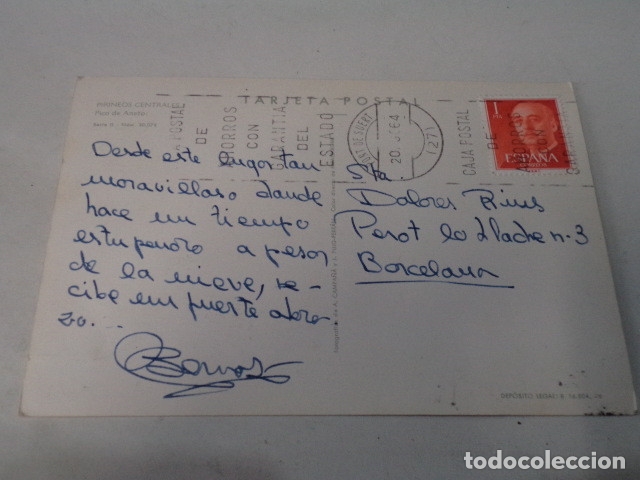 PIRINEOS CENTRALES
TARJETA POSTAL
CAJA POSTAL
DE
AHORROS
CON
GARANTIA
DEL
ESTADO
20
64
(27)
CAJA POSTAL
DE
AHORROS
CON
1
ESPAÑA
Desde este lugar tan
moravilloso donde
hace un tiempo
estupendo a pesar
de la nieve, re-
cibe un fuerte abra-
zo...
Srta.
Dolores Rius
Perot lo Lladre n-3
Barcelona
DEPÓSITO LEGAL: B.
todocoleccion.net